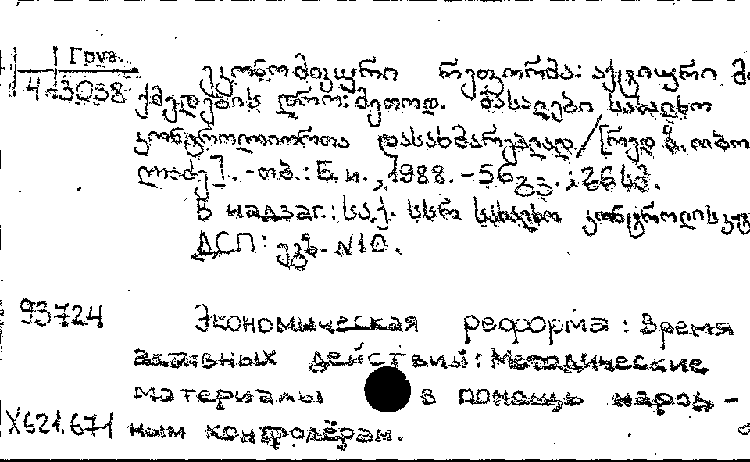 Груз.
413038
ეკონომიკური რეფორმა: აქტიური
ქმედების დრო: მეთოდ. მასალები სახალხო
კონტროლიორთა დასახმარებლად / [რედ.
.-თბ.: Б.и., 1988.-56გვ.; 26 სმ.
В надзаг.: საქ. სსრ სახალხო კონტროლის
ДСП: ეგზ. N10.
93724 Экономическая реформа: Время
активных действий: Методические
материалы в помощь народ-
X621.671 ным контролёрам.